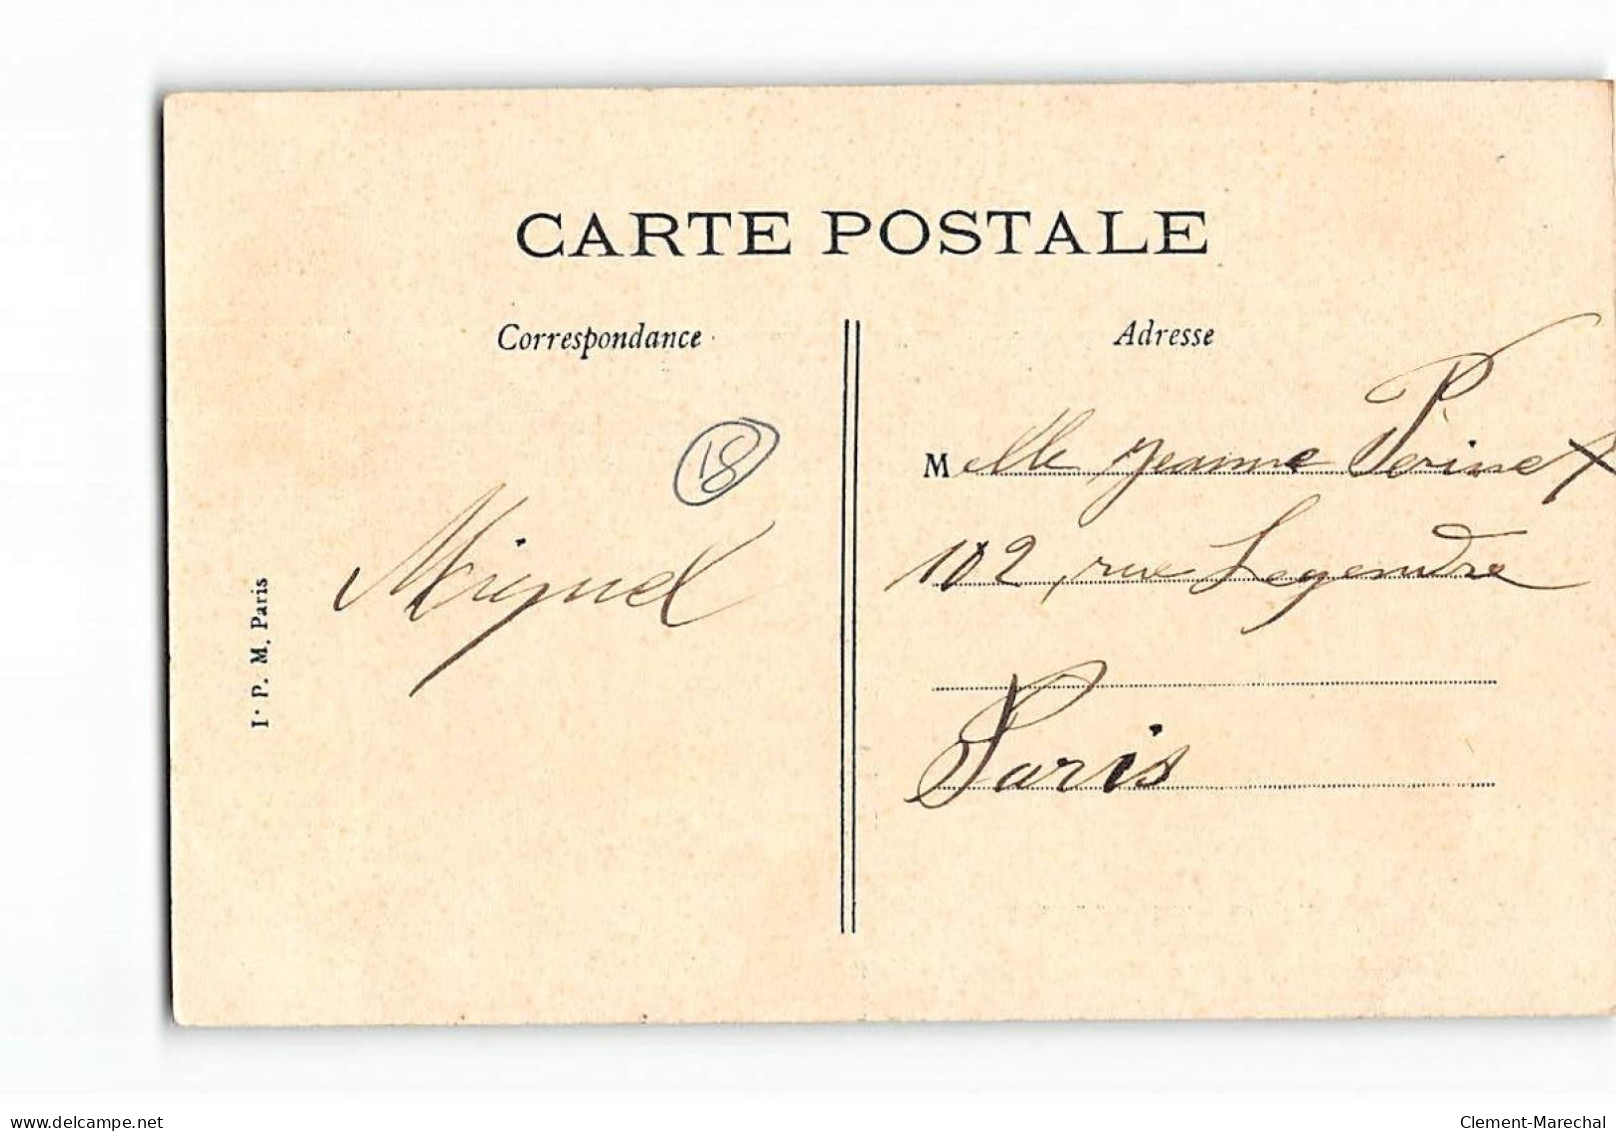 CARTE POSTALE
Correspondance
Adresse
18
Melle Jeanne Perinet
102, rue Legendre
Miguel
Paris
I. P. M. Paris
delcampe.net
Clement-Marechal